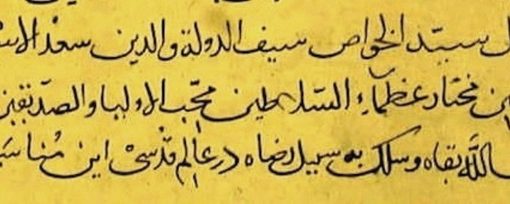 سید الخواص سیف الدولة والدین سعد الا
مختار عظماء السلاطین محب الاولیا والصدیقین
الله بقاه وسلک به سبیل رضاه در عالم قدسی این مناسبا